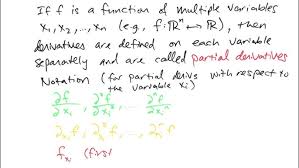 If f is a function of multiple variables
x₁, x₂, ..., xₙ (e.g., f: ℝⁿ ↦ ℝ), then
derivatives are defined on each variable
separately and are called partial derivatives
Notation (for partial derivs with respect to
the variable xᵢ)
∂f/∂xᵢ, ∂²f/∂xᵢ², ... ∂ⁿf/∂xᵢⁿ
f, f, ... f
fₓᵢ (first